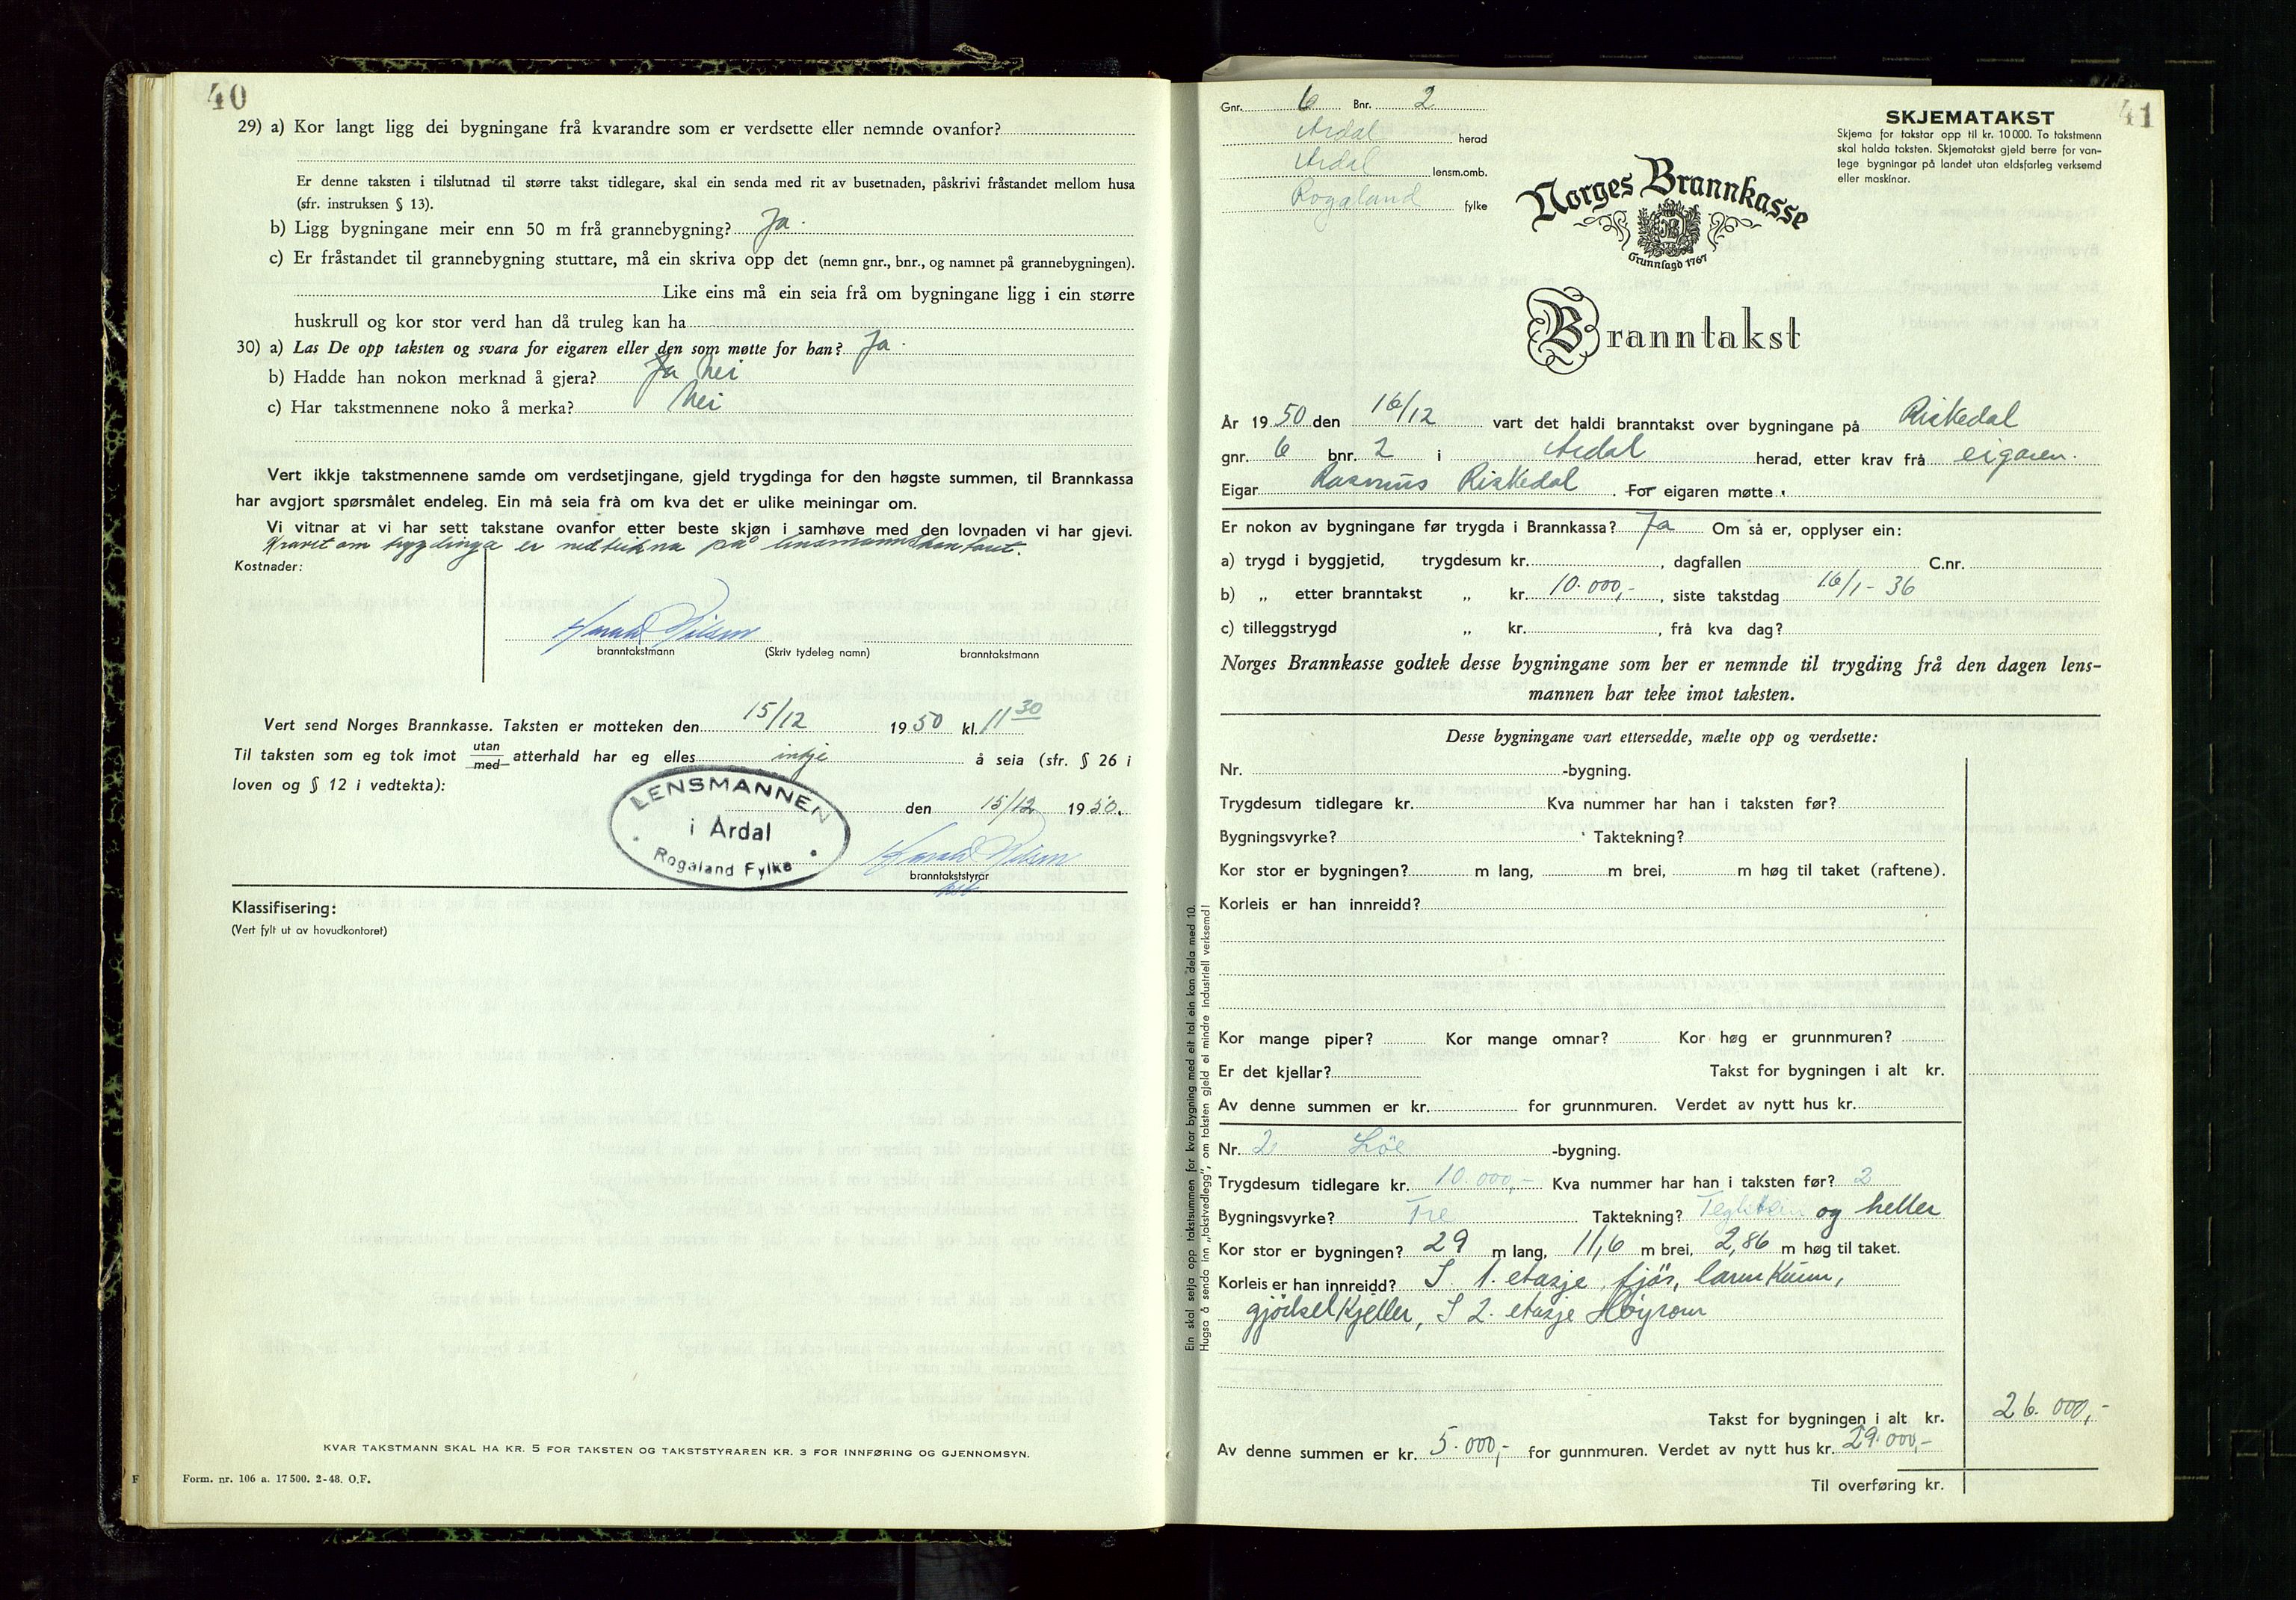 40
29) a) Kor langt ligg dei bygningane frå kvarandre som er verdsette eller nemnde ovanfor?
Er denne taksten i tilslutnad til større takst tidlegare, skal ein senda med rit av busetnaden, påskrivi fråstandet mellom husa
(sfr. instruksen § 13).
b) Ligg bygningane meir enn 50 m frå grannebygning? Ja.
c) Er fråstandet til grannebygning stuttare, må ein skriva opp det (nemn gnr., bnr., og namnet på grannebygningen).
Like eins må ein seia frå om bygningane ligg i ein større
huskrull og kor stor verd han då truleg kan ha
30) a) Las De opp taksten og svara for eigaren eller den som møtte for han? Ja.
b) Hadde han nokon merknad å gjera? Ja Nei
c) Har takstmennene noko å merka? Nei
Vert ikkje takstmennene samde om verdsetjingane, gjeld trygdinga for den høgste summen, til Brannkassa
har avgjort spørsmålet endeleg. Ein må seia frå om kva det er ulike meiningar om.
Vi vitnar at vi har sett takstane ovanfor etter beste skjøn i samhøve med den lovnaden vi har gjevi.
Kravet om trygdinga er nedteikna på lensmannskontoret.
Kostnader:
Harald Nilsen
branntakstmann (Skriv tydeleg namn) branntakstmann
Vert send Norges Brannkasse. Taksten er motteken den 15/12 1950 kl. 11 30
Til taksten som eg tok imot utan/med atterhald har eg elles inkje å seia (sfr. § 26 i
loven og § 12 i vedtekta):
LENSMANNEN
i Årdal
Rogaland Fylke
den 15/12 1950.
Harald Nilsen
branntakststyrar
Klassifisering:
(Vert fylt ut av hovudkontoret)
KVAR TAKSTMANN SKAL HA KR. 5 FOR TAKSTEN OG TAKSTSTYRAREN KR. 3 FOR INNFØRING OG GJENNOMSYN.
F Form. nr. 106 a. 17 500. 2-48. O.F.
41
Gnr. 6 Bnr. 2
Årdal herad
Årdal lensm.omb.
Rogaland fylke
SKJEMATAKST
Skjema for takstar opp til kr. 10 000. To takstmenn
skal halda taksten. Skjematakst gjeld berre for van-
lege bygningar på landet utan eldsfarleg verksemd
eller maskinar.
Norges Brannkasse
Grunnlagd 1767
Branntakst
År 1950 den 16/12 vart det haldi branntakst over bygningane på Riskedal
gnr. 6 bnr. 2 i Årdal herad, etter krav frå eigaren.
Eigar Rasmus Riskedal. For eigaren møtte.
Er nokon av bygningane før trygda i Brannkassa? Ja Om så er, opplyser ein:
a) trygd i byggjetid, trygdesum kr. , dagfallen C.nr.
b) „ etter branntakst „ kr. 10.000,- , siste takstdag 16/1-36
c) tilleggstrygd „ kr. , frå kva dag?
Norges Brannkasse godtek desse bygningane som her er nemnde til trygding frå den dagen lens-
mannen har teke imot taksten.
Desse bygningane vart ettersedde, mælte opp og verdsette:
Nr. -bygning.
Trygdesum tidlegare kr. Kva nummer har han i taksten før?
Bygningsvyrke? Taktekning?
Kor stor er bygningen? m lang, m brei, m høg til taket (raftene).
Korleis er han innreidd?
Kor mange piper? Kor mange omnar? Kor høg er grunnmuren?
Er det kjellar? Takst for bygningen i alt kr.
Av denne summen er kr. for grunnmuren. Verdet av nytt hus kr.
Nr. 2 Löe -bygning.
Trygdesum tidlegare kr. 10.000,- Kva nummer har han i taksten før? 2
Bygningsvyrke? Tre Taktekning? Teglstein og heller
Kor stor er bygningen? 29 m lang, 11,6 m brei, 2,86 m høg til taket.
Korleis er han innreidd? I 1. etasje fjös,
gjödselkjeller, I 2. etasje Höyrom
Takst for bygningen i alt kr. 26.000,-
Av denne summen er kr. 5.000,- for gunnmuren. Verdet av nytt hus kr. 29.000,-
Til overføring kr.
Ein skal setja opp takstsummen for kvar bygning med eit tal ein kan dela med 10.
Hugsa å senda inn „takstvedlegg”, om taksten gjeld ei mindre industriell verksemd!